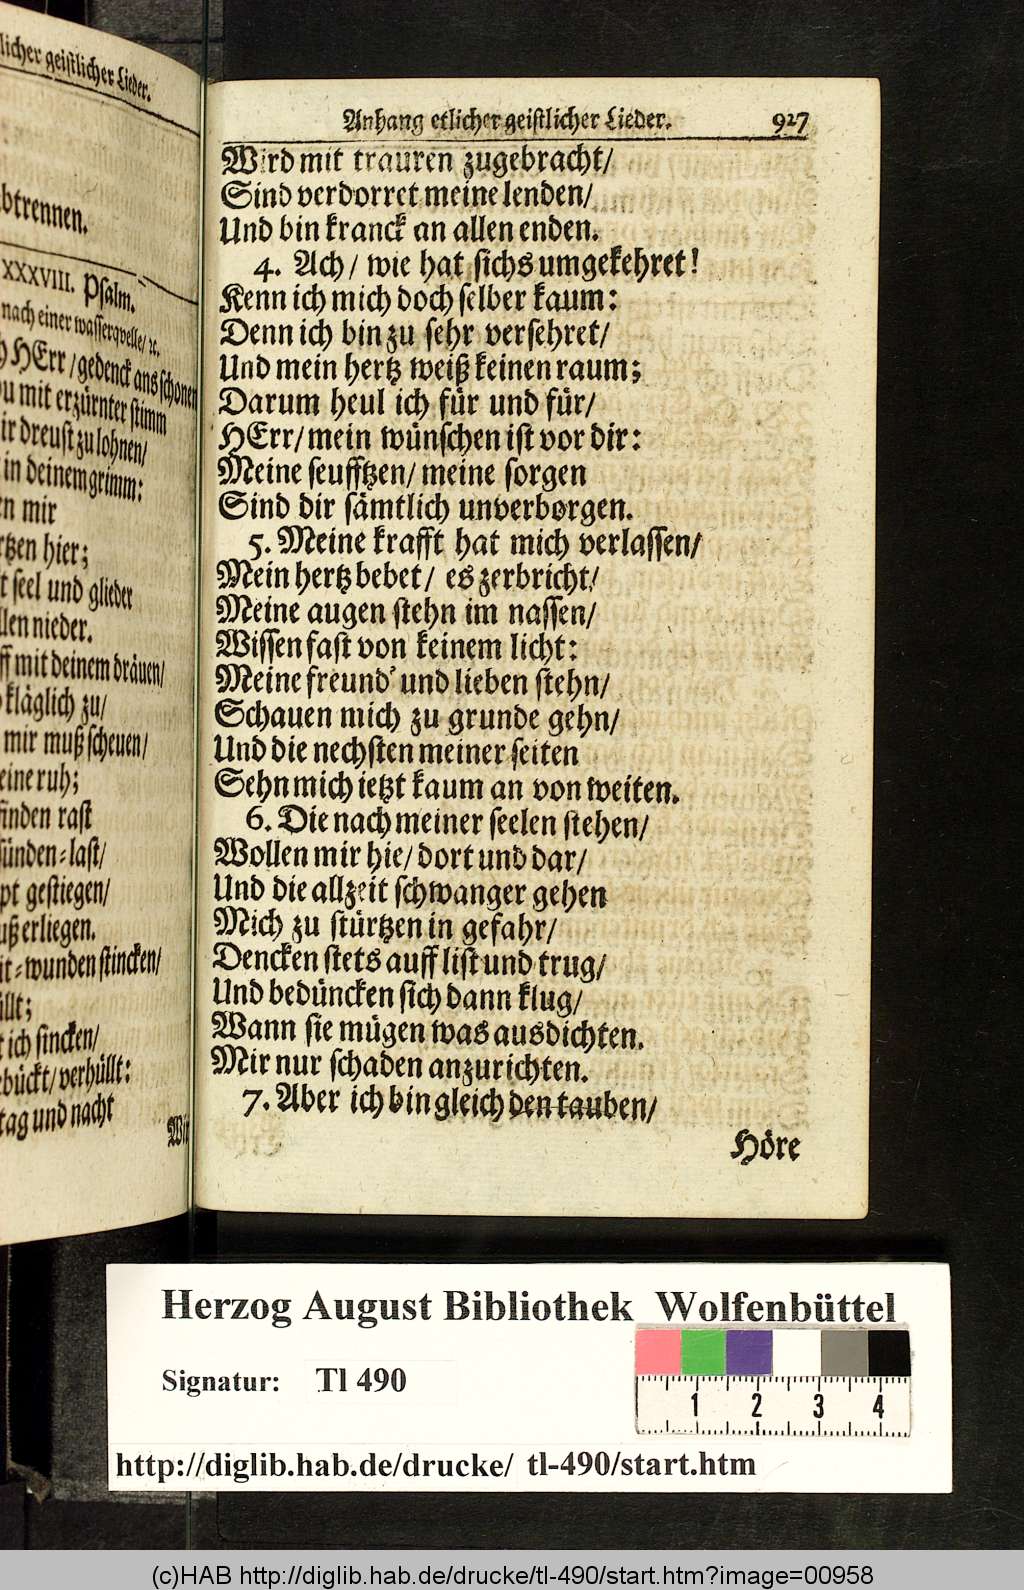 licher geistlicher Lieder.
btrennen.
XXXVIII. Psalm.
nach einer wasserqvelle/ ꝛc.
HErr/ gedenck ans schonen
mit erzürnter stimm
dreust zu lohnen/
in deinem grimm:
mir
hier;
seel und glieder
nieder.
mit deinem dräuen/
kläglich zu/
mir muß scheuen/
ruh;
finden rast
sünden-last/
gestiegen/
erliegen.
wunden stincken/
ich sincken/
verhüllt:
tag und nacht
Wir
Anhang etlicher geistlicher Lieder. 927
Wird mit trauren zugebracht/
Sind verdorret meine lenden/
Und bin kranck an allen enden.
4. Ach/ wie hat sichs umgekehret!
Kenn ich mich doch selber kaum:
Denn ich bin zu sehr versehret/
Und mein hertz weiß keinen raum;
Darum heul ich für und für/
HErr/ mein wünschen ist vor dir:
Meine seufftzen/ meine sorgen
Sind dir sämtlich unverborgen.
5. Meine krafft hat mich verlassen/
Mein hertz bebet/ es zerbricht/
Meine augen stehn im nassen/
Wissen fast von keinem licht:
Meine freund' und lieben stehn/
Schauen mich zu grunde gehn/
Und die nechsten meiner seiten
Sehn mich ietzt kaum an von weiten.
6. Die nach meiner seelen stehen/
Wollen mir hie/ dort und dar/
Und die allzeit schwanger gehen
Mich zu stürtzen in gefahr/
Dencken stets auff list und trug/
Und bedüncken sich dann klug/
Wann sie mügen was ausdichten.
Mir nur schaden anzurichten.
7. Aber ich bin gleich den tauben/
Höre
Herzog August Bibliothek Wolfenbüttel
Signatur: Tl 490
1 2 3 4
http://diglib.hab.de/drucke/ tl-490/start.htm
(c)HAB http://diglib.hab.de/drucke/tl-490/start.htm?image=00958